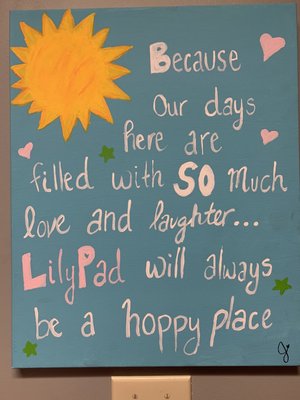 Because
Our days
here are
filled with SO much
love and laughter...
LilyPad will always
be a hoppy place